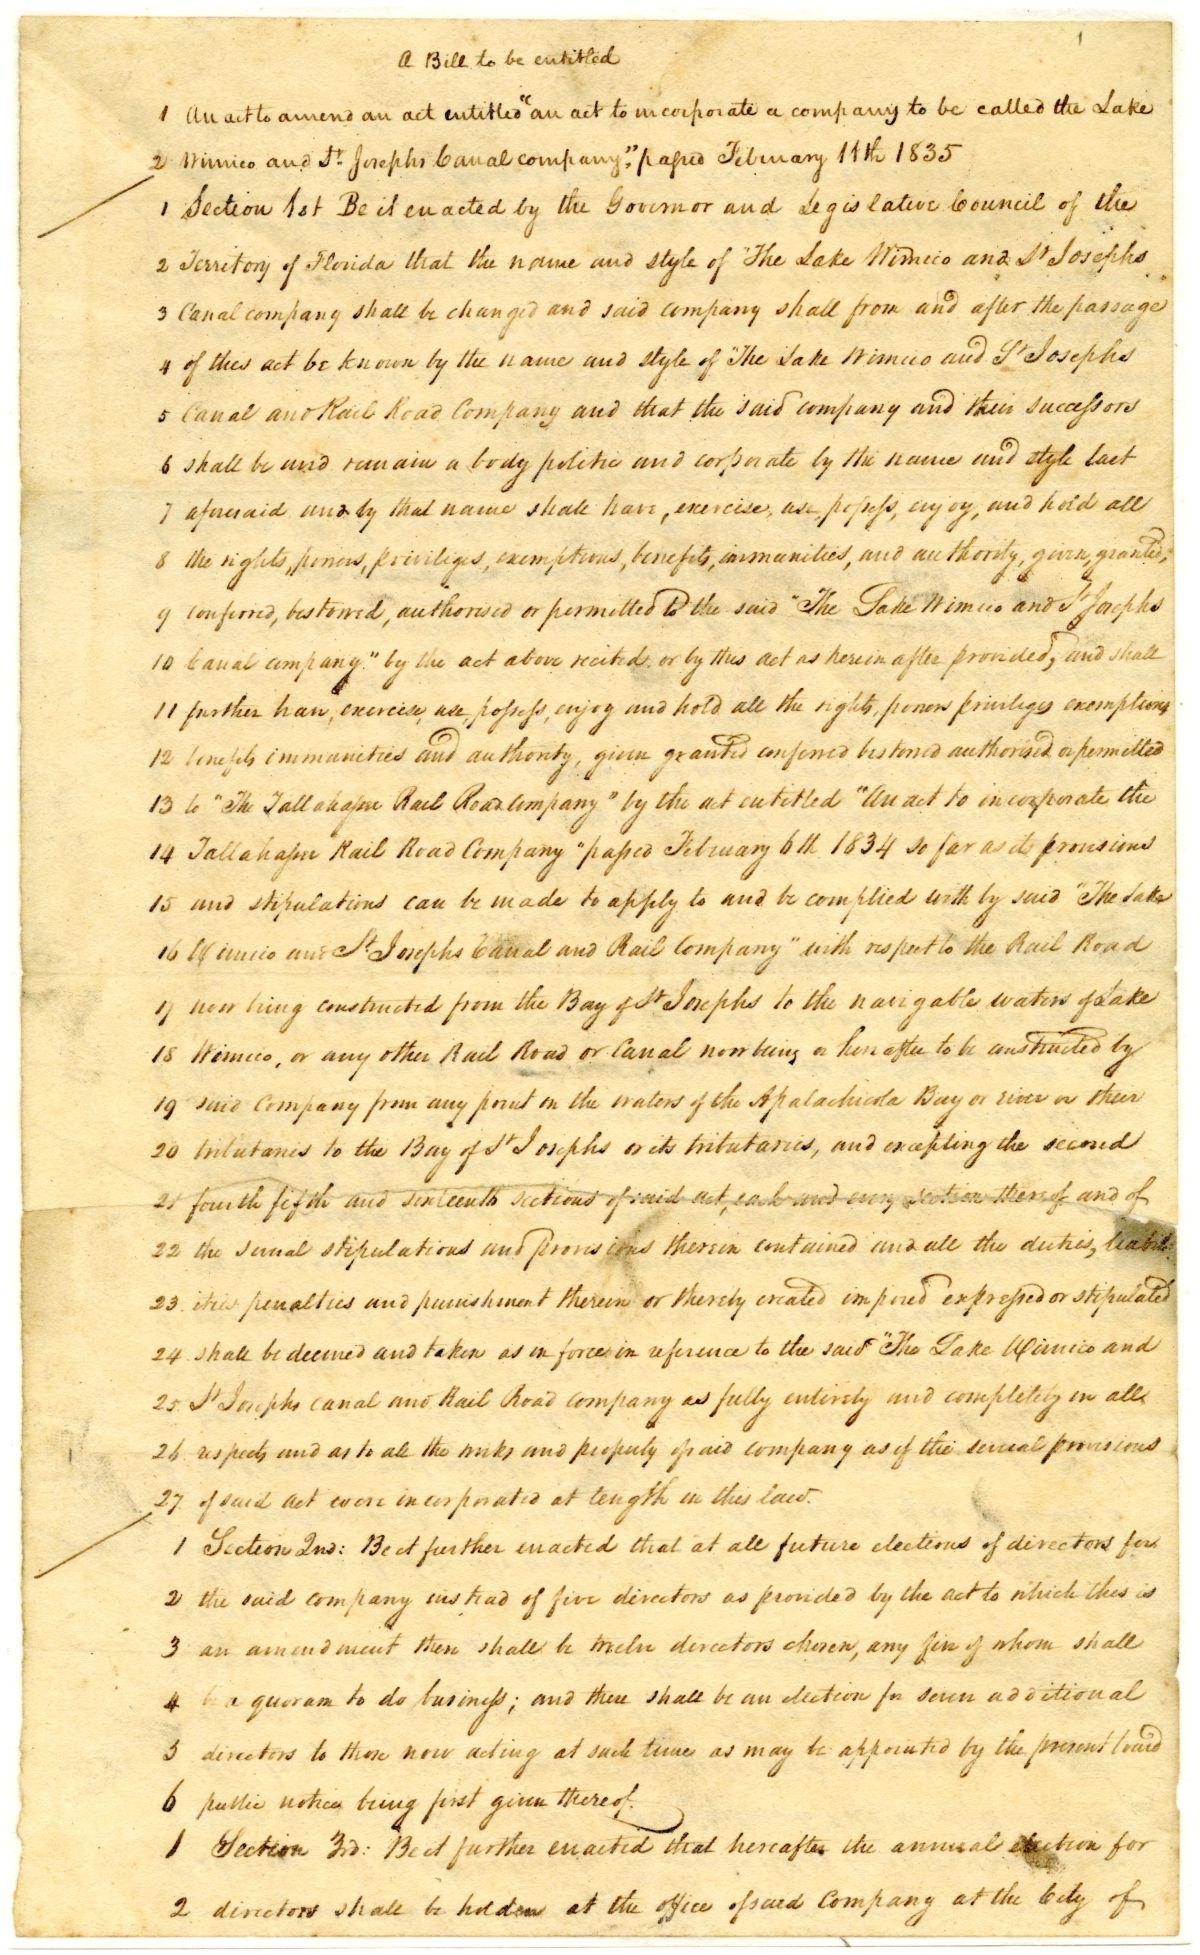 1
A Bill to be entitled
1 An act to amend an act entitled "an act to incorporate a company to be called the Lake
2 Wimico and St. Josephs Canal company", passed February 11th 1835
1 Section 1st Be it enacted by the Governor and Legislative Council of the
2 Territory of Florida that the name and style of "The Lake Wimico and St Josephs
3 Canal company shall be changed and said company shall from and after the passage
4 of this act be known by the name and style of "The Lake Wimico and St Josephs
5 Canal and Rail Road Company and that the said company and their successors
6 shall be and remain a body politic and corporate by the name and style last
7 aforesaid and by that name shall have, exercise, use, possess, enjoy, and hold all
8 the rights, powers, priviliges, exemptions, benefits, immunities, and authority, given, granted,
9 conferred, bestowed, authorised or permitted to the said "The Lake Wimico and St Josephs
10 Canal company." by the act above recited or by this act as herein after provided, and shall
11 further have, exercise, use, possess, enjoy and hold all the rights, powers priviliges exemptions
12 benefits immunities and authority, given granted conferred bestowed authorised or permitted
13 to "The Tallahassee Rail Road Company" by the act entitled "An act to incorporate the
14 Tallahassee Rail Road Company" passed February 6th 1834 so far as its provisions
15 and stipulations can be made to apply to and be complied with by said "The Lake
16 Wimico and St Josephs Canal and Rail Company" with respect to the Rail Road
17 now being constructed from the Bay of St Josephs to the navigable waters of Lake
18 Wimico, or any other Rail Road or Canal now being or hereafter to be constructed by
19 said Company from any point on the waters of the Apalachicola Bay or river or their
20 tributaries to the Bay of St Josephs or its tributaries, and excepting the second
21 fourth fifth and sixteenth sections of said act, each and every section thereof and of
22 the several stipulations and provisions therein contained and all the duties, liabil-
23 ities penalties and punishment therein or thereby created imposed expressed or stipulated
24 shall be deemed and taken as in force in reference to the said "The Lake Wimico and
25 St Josephs canal and Rail Road company as fully entirely and completely in all
26 respects and as to all the works and property of said company as if the several provisions
27 of said act were incorporated at length in this law.
1 Section 2nd: Be it further enacted that at all future elections of directors for
2 the said company instead of five directors as provided by the act to which this is
3 an amendment there shall be twelve directors chosen, any five of whom shall
4 be a quoram to do business; and there shall be an election for seven additional
5 directors to those now acting at such time as may be appointed by the present board
6 public notice being first given thereof.
1 Section 3rd: Be it further enacted that hereafter the annual election for
2 directors shall be holden at the office of said Company at the City of